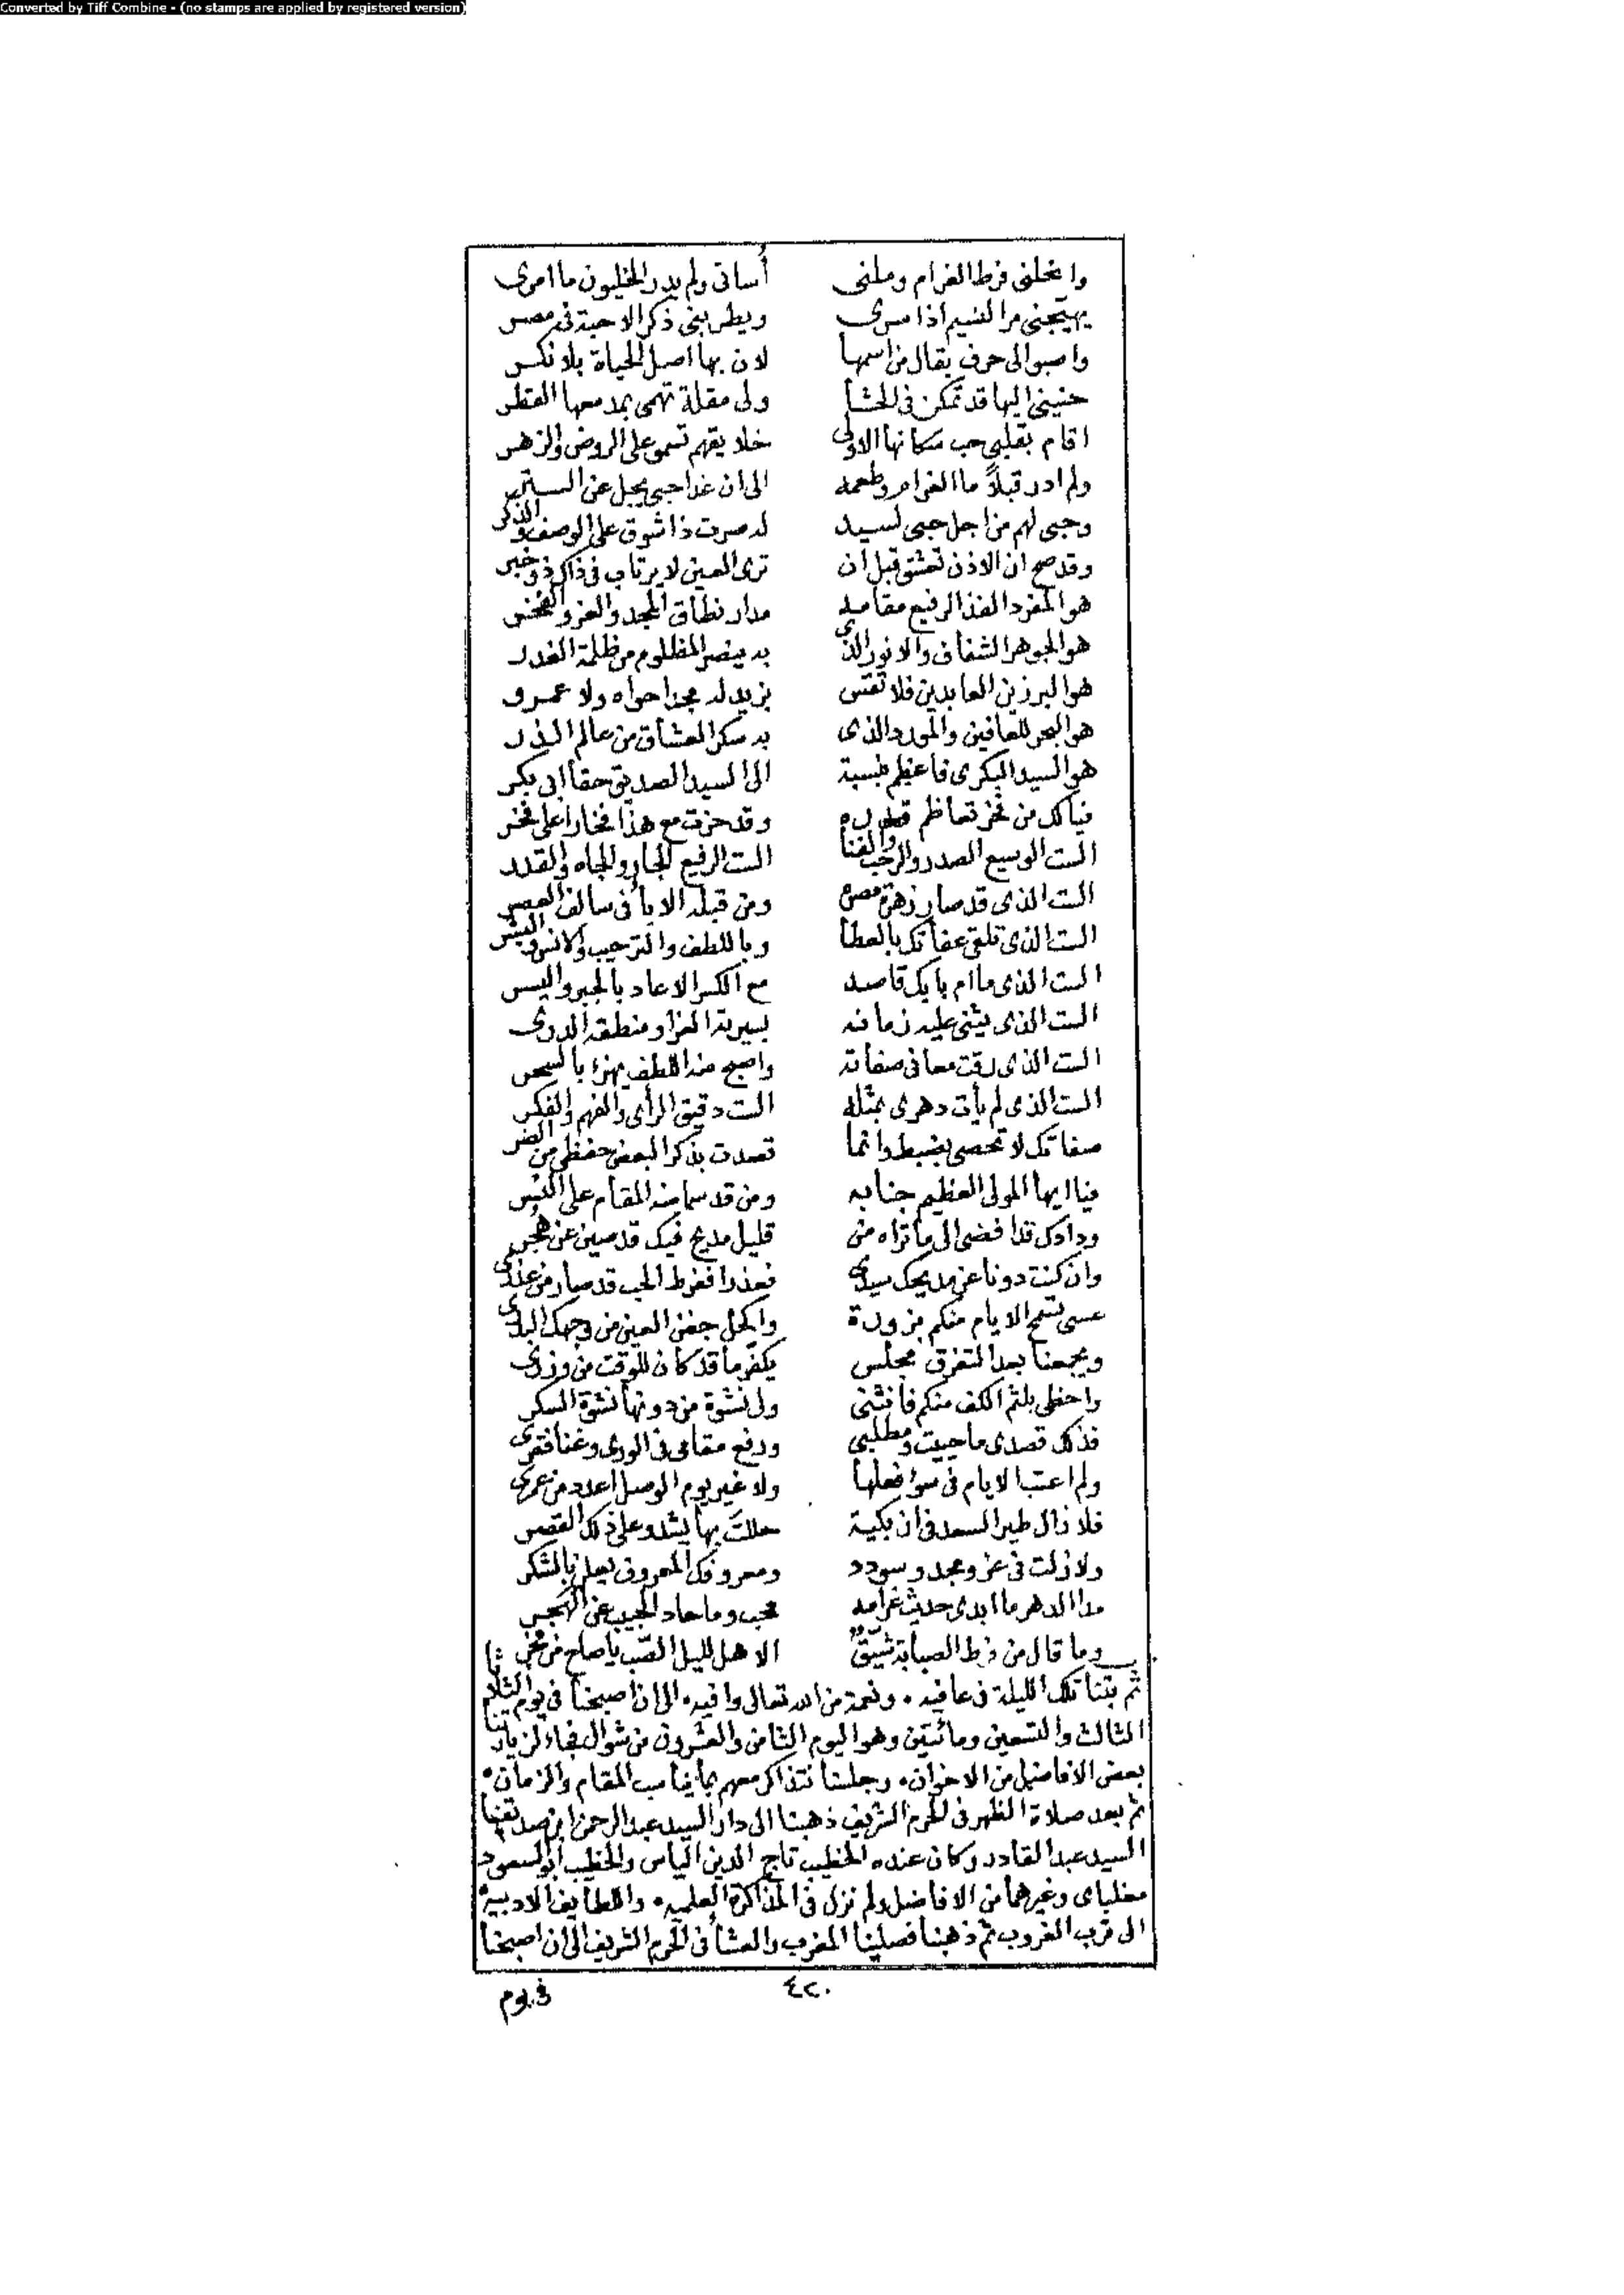 Converted by Tiff Combine - (no stamps are applied by registered version)
وانحلنى فرط الغرام وملنى أساتى ولم يدر الخليون ما امرى
يهيجنى مر النسيم اذا سرى ويطربنى ذكر الاحبة فى مصر
واصبو الى حرف يقال من اسمها لان بها اصل الحياة بلا نكر
حنينى اليها قد تمكن فى الحشا ولى مقلة تهمى بمدمعها القطر
اقام بقلبى حب سكانها الاولى خلايقهم تسمو على الروض والزهر
ولم ادر قبلاً ما الغرام وطعمه الى ان غدا حبى يجل عن الستر
وحبى لهم من اجل حبى لسيد له صرت ذا شوق على الوصف والذكر
وقد صح ان الاذن تعشق قبل ان ترى العين لا يرتاب فى ذاك ذو خبر
هو المفرد الفذ الرفيع مقامه مدار نطاق المجد والعز والفخر
هو الجوهر الشفاف والانور الذى به ينصر المظلوم من ظلمة الغدر
هو البر زين العابدين فلا تقس بزيد له مجدا حواه ولا عمرو
هو البحر للعافين والمورد الذى به سكر العشاق من عالم الذر
هو السيد البكرى فاعظم بنسبة الى السيد الصديق حقا ابى بكر
فيالك من فخر تعاظم قدره وقد حزت مع هذا فخارا على فخر
الست الوسيع الصدر والرحب والفنا الست الرفيع الجار والجاه والقدر
الست الذى قد صار زهرة مصره ومن قبله الاباء فى سالف العصر
الست الذى تلقى عفاتك بالعطا وباللطف والترحيب والانس والبشر
الست الذى ما ام بابك قاصد مع الكسر الا عاد بالجبر واليسر
الست الذى يثنى عليه زمانه بسيرته الغرا ومنطقه الدرى
الست الذى رقت معانى صفاته واصبح منه اللطف يهزا بالسحر
الست الذى لم يأت دهرى بمثله الست دقيق الرأى والفهم والفكر
صفاتك لا تحصى بضبط وانما قصدت بذكر البعض حفظى من الضر
فيا ايها المولى العظيم جنابه ومن قد سما منه المقام على النسر
ودادك قد افضى الى ما تراه من قليل مديح فيك قد صين عن هجر
وان كنت دونا عن مديحك سيدى فعذرا ففرط الحب قد صار من عذرى
عسى تسمح الايام منكم بزورة واكحل جفن العين من وجهك البدرى
ويجمعنا بعد التفرق مجلس يكفر ما قد كان للوقت من وزر
واحظى بلثم الكف منكم فانثنى ولى نشوة من دونها نشوة السكر
فذلك قصدى ما حييت ومطلبى ورفع مقامى فى الورى وغنا فقرى
ولم اعتب الايام فى سوا فعلها ولا غير يوم الوصل اعدد من عمرى
فلا زال طير السعد فى ازبكية حللت بها يشدو على ذلك القصر
ولا زلت فى عز ومجد وسودد ومعروفك المعروف يعلن بالشكر
مدا الدهر ما ابدى حديث غرامه محب وما حاد الحبيب عن الهجر
وما قال من فرط الصبابة شيق الا هل لليل الصب يا صاح من فجر
ثم بتنا تلك الليلة فى عافيه • ونعمة من الله تعالى وافيه • الى ان اصبحنا فى يوم الثلاثا
الثالث والتسعين ومائتين وهو اليوم الثامن والعشرون من شوال فجاء لزيارتنا
بعض الافاضل من الاخوان • وجلسنا نتذاكر معهم بما يناسب المقام والزمان •
ثم بعد صلاة الظهر فى الحرم الشريف ذهبنا الى دار السيد عبد الرحمن ابن صديقنا
السيد عبد القادر وكان عنده الخطيب تاج الدين الياس والخطيب ابو السعود
مغلباى وغيرهما من الافاضل ولم نزل فى المذاكرة العلميه • واللطايف الادبية •
الى قرب الغروب ثم ذهبنا فصلينا المغرب والعشا فى الحرم الشريف الى ان اصبحنا
٤٢٠
فى يوم